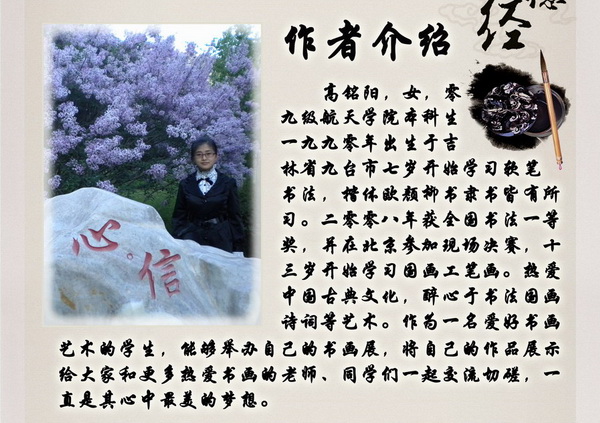 经
作者介绍
高铭阳，女，零
九级航天学院本科生
一九九零年出生于吉
林省九台市七岁开始学习软笔
书法，楷体欧颜柳书隶书皆有所
习。二零零八年获全国书法一等
奖，并在北京参加现场决赛，十
三岁开始学习国画工笔画。热爱
中国古典文化，醉心于书法国画
诗词等艺术。作为一名爱好书画
艺术的学生，能够举办自己的书画展，将自己的作品展示
给大家和更多热爱书画的老师、同学们一起交流切磋，一
直是其心中最美的梦想。
心信